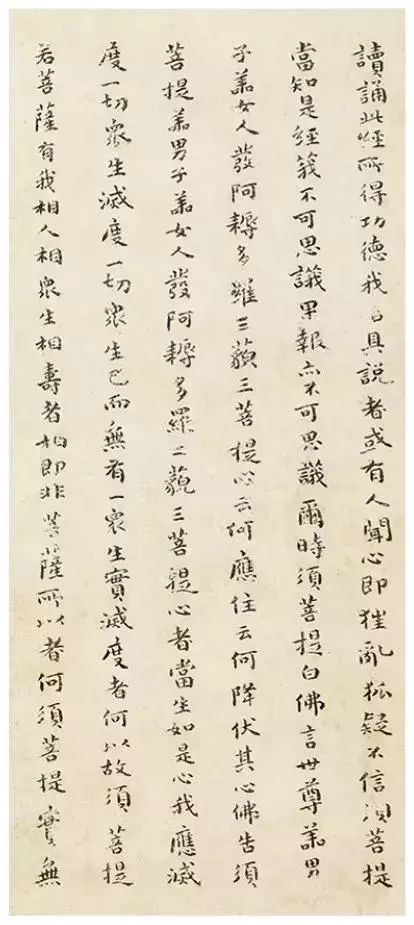 讀誦此經所得功德我若具說者或有人聞心即狂亂狐疑不信須菩提
當知是經義不可思議果報亦不可思議爾時須菩提白佛言世尊善男
子善女人發阿耨多羅三藐三菩提心云何應住云何降伏其心佛告須
菩提善男子善女人發阿耨多羅三藐三菩提心者當生如是心我應滅
度一切眾生滅度一切眾生已而無有一眾生實滅度者何以故須菩提
若菩薩有我相人相眾生相壽者相即非菩薩所以者何須菩提實無